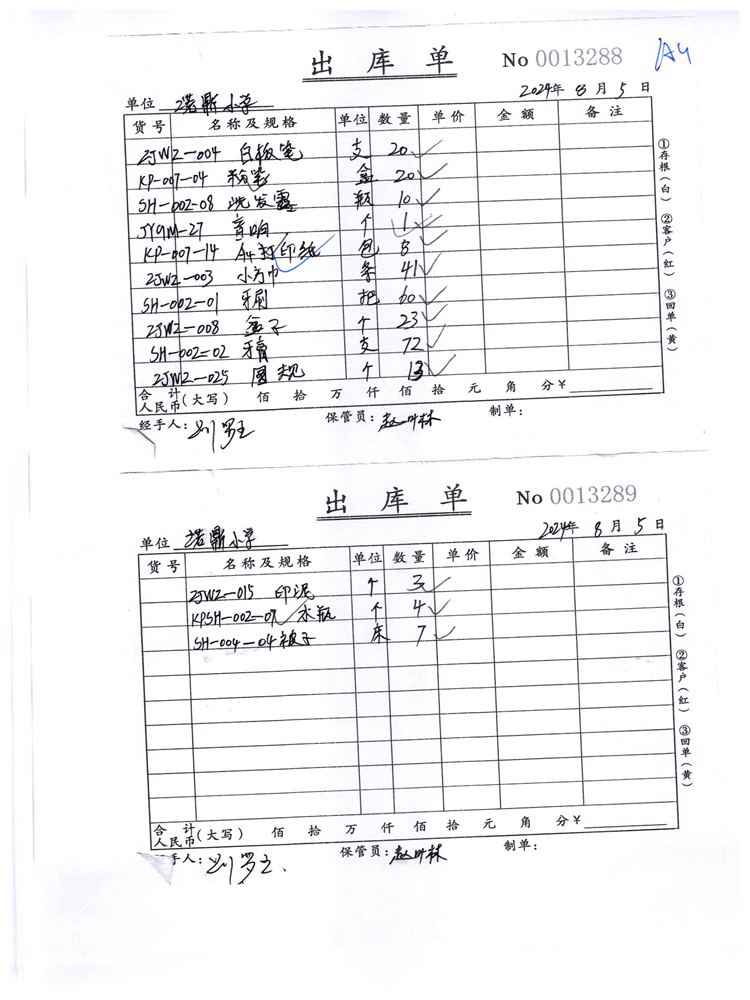 出库单 No 0013288 A4
2024年 8月 5日
单位 诺鼎小学
货号 名称及规格 单位 数量 单价 金额 备注
ZJWZ-004 白板笔 支 20
KP-007-04 粉笔 盒 20
SH-002-08 洗发露 瓶 10
JYQM-27 音响 个 1
KP-007-14 A4打印纸 包 5
ZJWZ-003 小方巾 条 41
SH-002-01 牙刷 把 60
ZJWZ-008 盒子 个 23
SH-002-02 牙膏 支 72
ZJWZ-025 圆规 个 13
合计人民币(大写) 佰 拾 万 仟 佰 拾 元 角 分¥
经手人: 保管员: 制单:
①存根(白) ②客户(红) ③回单(黄)
出库单 No 0013289
2024年 8月 5日
单位 诺鼎小学
货号 名称及规格 单位 数量 单价 金额 备注
ZJWZ-015 印泥 个 3
KPSH-002-07 水瓶 个 4
SH-004-04 被子 床 7
合计人民币(大写) 佰 拾 万 仟 佰 拾 元 角 分¥
手人: 保管员: 制单:
①存根(白) ②客户(红) ③回单(黄)